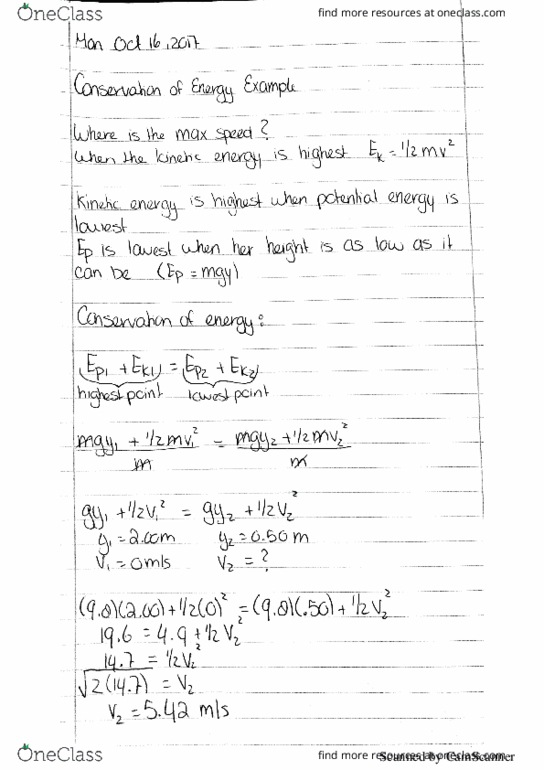 OneClass
find more resources at oneclass.com
Mon Oct 16, 2017
Conservation of Energy Example
Where is the max speed?
When the kinetic energy is highest Ek = 1/2 mv²
Kinetic energy is highest when potential energy is
lowest
Ep is lowest when her height is as low as it
can be (Ep = mgy)
Conservation of energy:
(Ep1 + Ek1) = (Ep2 + Ek2)
highest point lowest point
mgy₁ + 1/2 mv₁² = mgy₂ + 1/2 mv₂²
m m
gy₁ + 1/2 v₁² = gy₂ + 1/2 v₂²
y₁ = 2.00m y₂ = 0.50 m
v₁ = 0m/s v₂ = ?
(9.8)(2.00) + 1/2(0)² = (9.8)(.50) + 1/2 v₂²
19.6 = 4.9 + 1/2 v₂²
14.7 = 1/2 v₂²
√2(14.7) = v₂
v₂ = 5.42 m/s
OneClass
find more resources at oneclass.com
Scanned by CamScanner